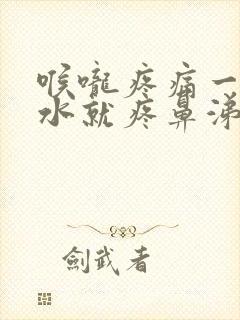 喉嚨疼痛一
水就疼鼻涕
劍武者